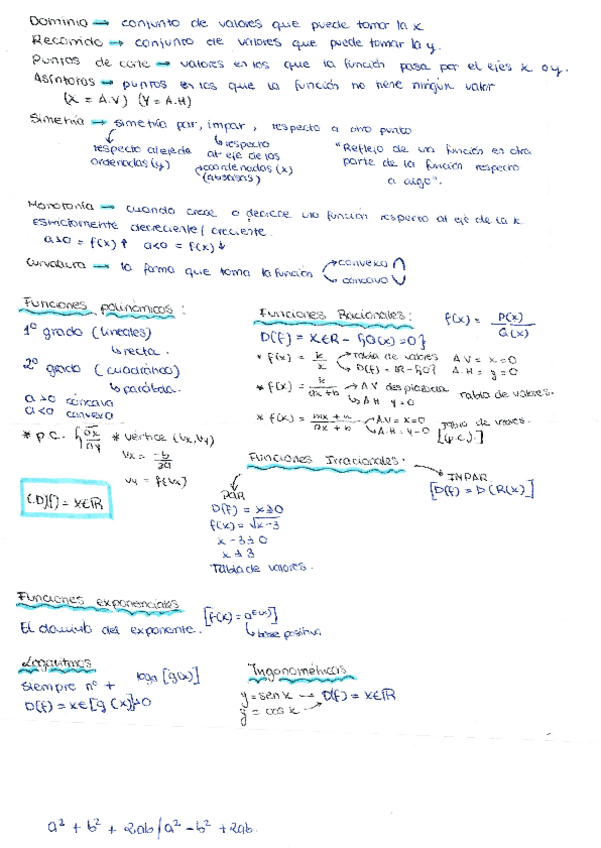 Dominio → conjunto de valores que puede tomar la x
Recorrido → conjunto de valores que puede tomar la y.
Puntos de corte → valores en los que la función pasa por el ejes x o y.
Asíntotas → puntos en los que la función no tiene ningún valor
(X = A.V) (Y = A.H)
Simetría → simetría par, impar, respecto a otro punto
respecto al eje de ordenadas (y)
respecto al eje de las coordenadas (x) (abscisas)
"Reflejo de una función en otra parte de la función respecto a algo".
Monotonía → cuando crece o decrece una función respecto al eje de la x.
estrictamente decreciente / creciente.
a>0 = f(x)↑ a<0 = f(x)↓
Curvatura → la forma que toma la función
convexo ∩
cóncavo ∪
Funciones polinómicas:
1º grado (lineales)
↳ recta.
2º grado (cuadrática)
↳ parábola.
a>0 cóncava
a<0 convexa
* p.c. * vértice (Vx, Vy)
Vx = -b/2a
Vy = f(Vx)
D(f) = x∈ℝ
Funciones Racionales: f(x) = P(x)/Q(x)
D(f) = x∈R - {Q(x)=0}
* f(x) = k/x → Tabla de valores A.V = x=0
→ D(f) = ℝ-{0} A.H = y=0
* f(x) = k/ax+b → A.V desplazada Tabla de valores.
↳ A.H y=0
* f(x) = mx+n/ax+b → A.V = x=0 Tabla de valores.
→ A.H = y=0 [(p.c).]
Funciones Irracionales.
PAR
D(f) = x≥0
f(x) = √x-3
x-3≥0
x≥3
Tabla de valores.
IMPAR
[D(f) = D(R(x)]
Funciones exponenciales [f(x) = a^f(x)]
El dominio del exponente. ↳ base positiva
Logaritmos logn [g(x)]
Siempre nº +
D(f) = x∈[g(x)]>0
Trigonométricas
y = sen x → D(f) = x∈ℝ
y = cos x
a² + b² + 2ab / a² - b² + 2ab.